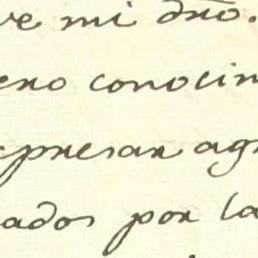 ve mi dr̃o.
ero conocim
presar agr
ados por la